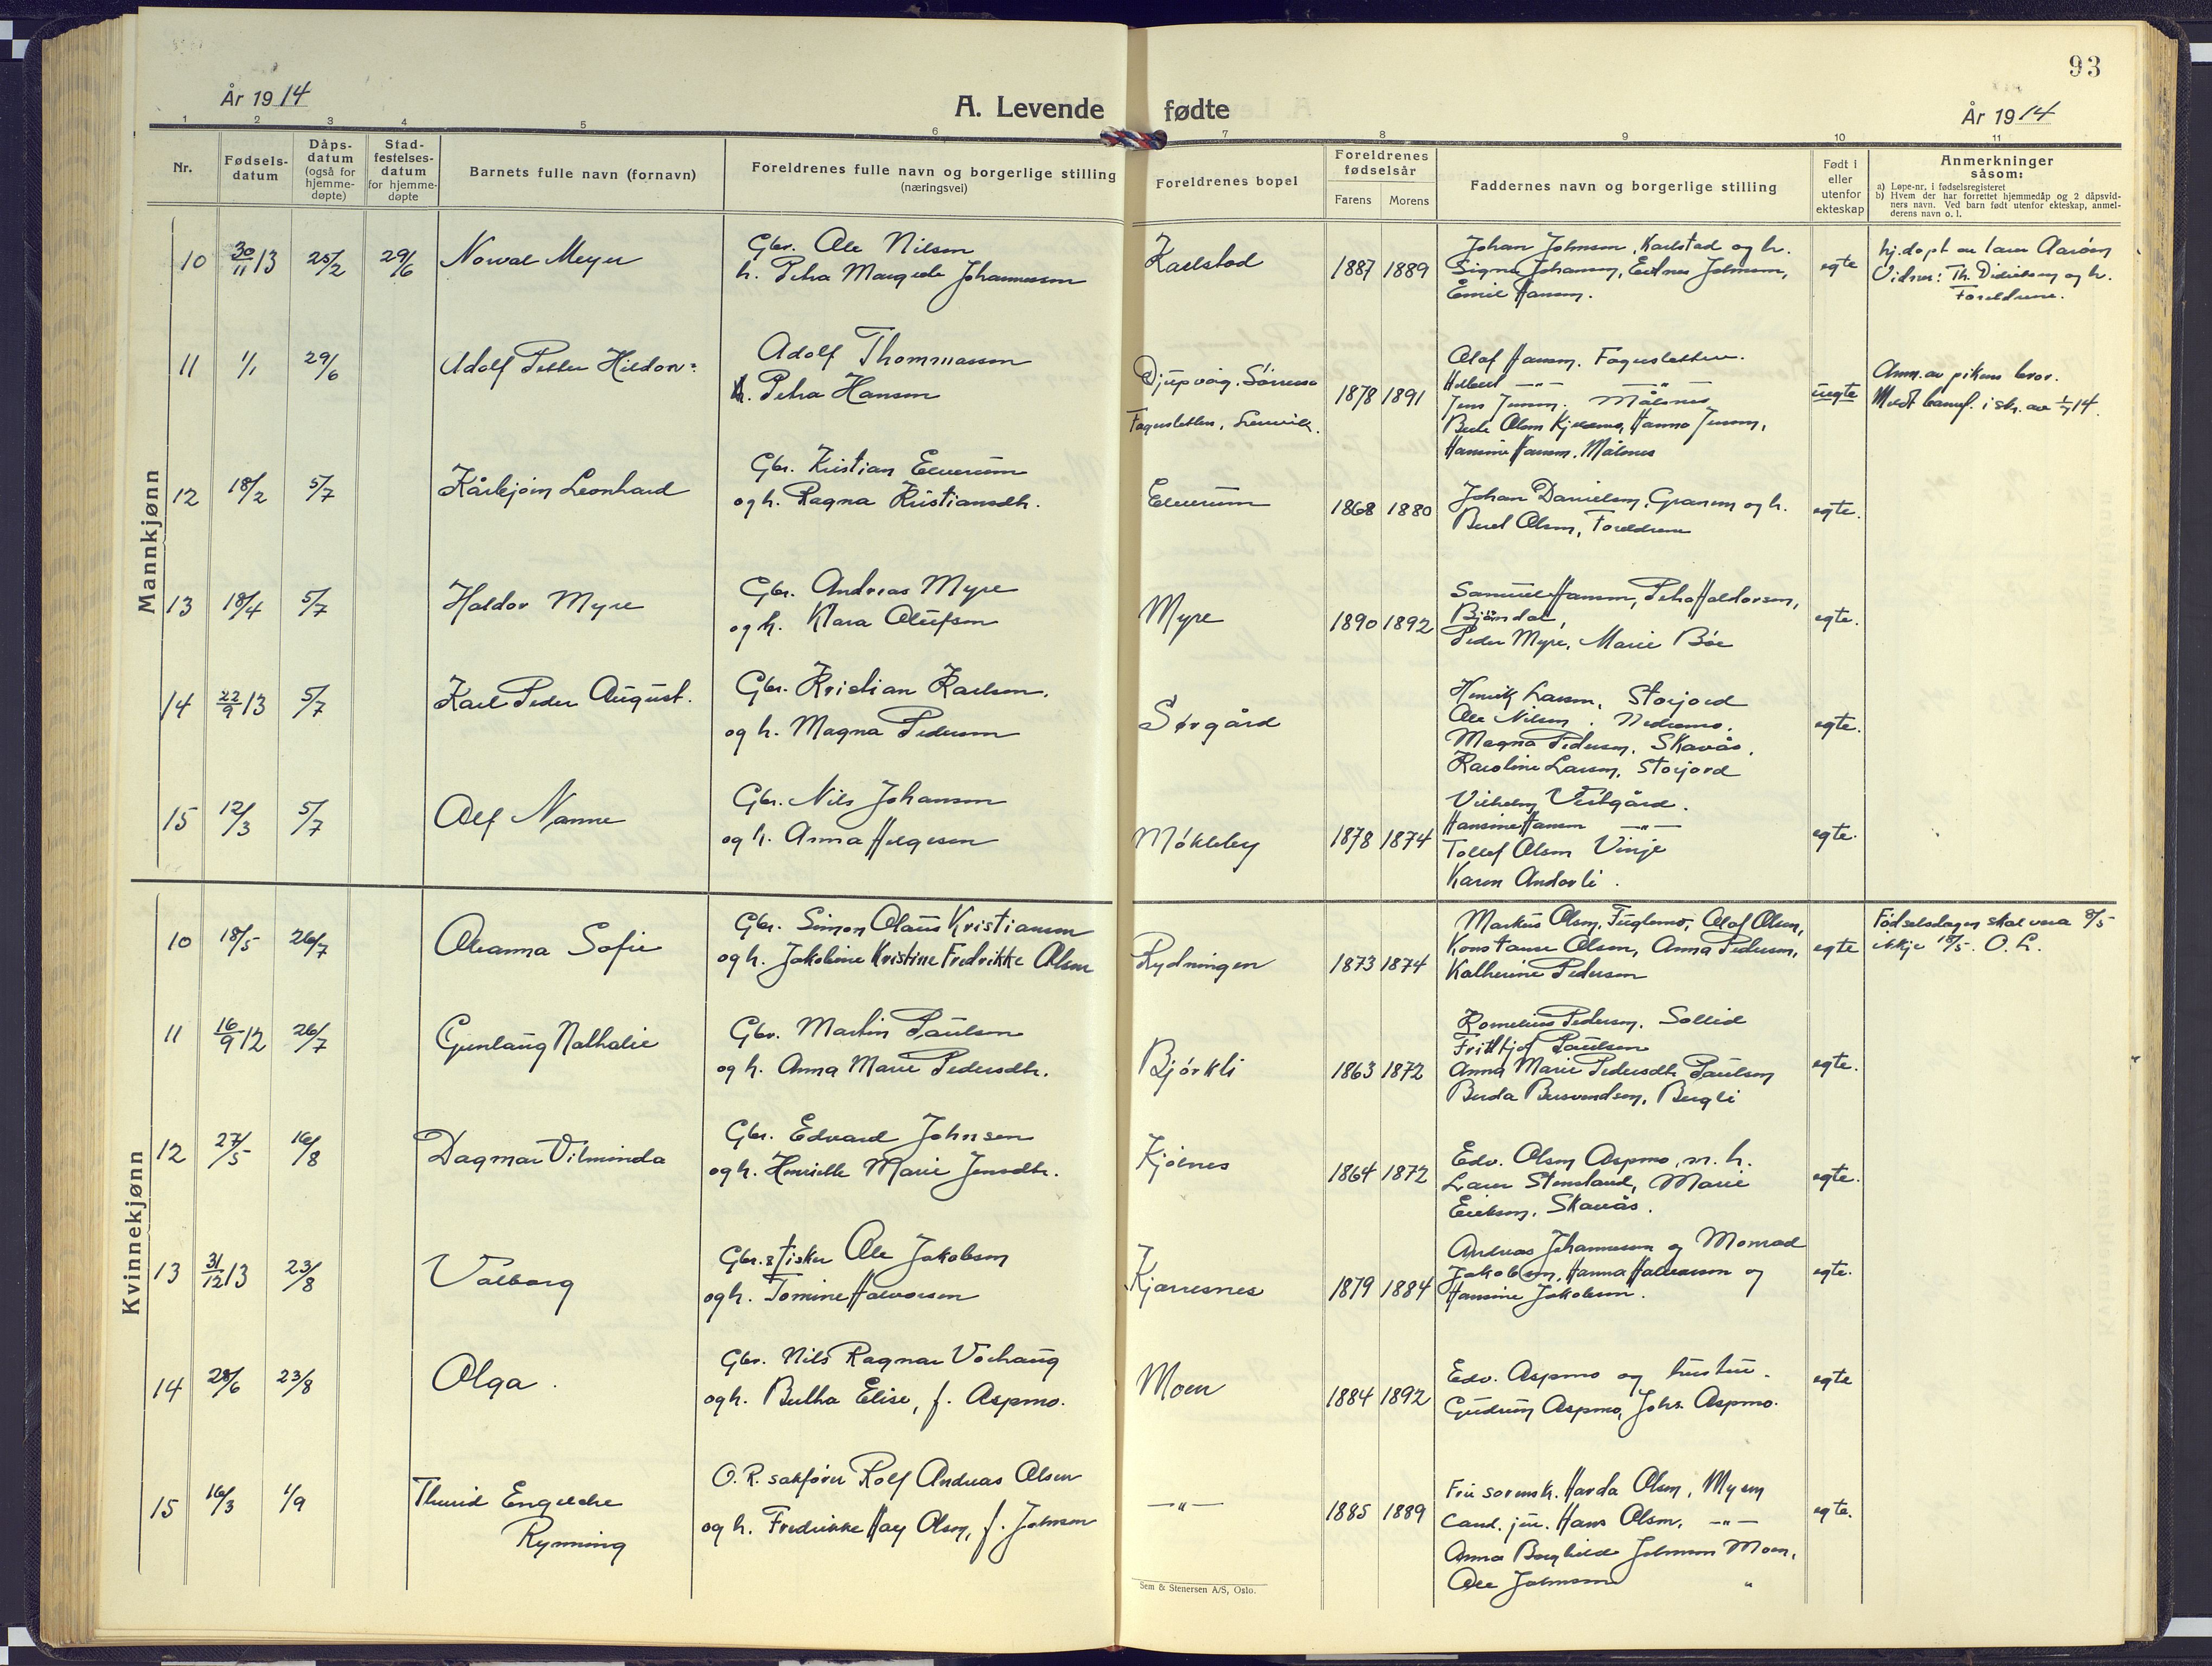 93
År 1914
A. Levende fødte
År 1914
1 2 3 4 5 6 7 8 9 10 11
Nr.
Fødsels-
datum
Dåps-
datum
(også for
hjemme-
døpte)
Stad-
festelses-
datum
for hjemme-
døpte
Barnets fulle navn (fornavn)
Foreldrenes fulle navn og borgerlige stilling
(næringsvei)
Foreldrenes bopel
Foreldrenes
fødselsår
Farens Morens
Faddernes navn og borgerlige stilling
Født i
eller
utenfor
ekteskap
Anmerkninger
såsom:
a) Løpe-nr. i fødselsregisteret
b) Hvem der har forrettet hjemmedåp og 2 dåpsvid-
ners navn. Ved barn født utenfor ekteskap, anmel-
derens navn o. l.
Mannkjønn
10 30/11 13 25/2 29/6 Norval Meyer
Gbr. Ole Nilsen
h. Petra Margrete Johannessen
Karlstad 1887 1889
Johan Johnsen, Karlstad og h.
Signe Johansen, Johnsen,
Emil Hansen.
egte
hj. døpt av lærer Aarøen
Vidner: Th. Didriksen og h.
Foreldrene.
11 1/1 29/6 Adolf Petter Hildor
Adolf Thomassen
Petra Hansen
Djupvåg. Sørreisa
Fagersletten, Lenvik.
1878 1891
Olaf Hansen. Fagersletten.
—"— —"—
Jens Jensen. Målsnes
Olsen Hanna Jensen,
Hansine Hansen. Målsnes
uegte
Anm. av pikens bror.
Meldt i skr. av 1/7 14.
12 18/2 5/7 Kårbjørn Leonhard
Gbr. Kristian Elverum
og h. Ragna Kristiansdtr.
Elverum 1868 1880
Johan Danielsen, Granum og h.
Berit Olsen, Foreldrene
egte.
13 18/4 5/7 Haldor Myre
Gbr. Andreas Myre
og h. Klara Olufsen
Myre 1890 1892
Samuel Hansen, Petra Haldorsen,
Bjørndal,
Peder Myre, Marie Bøe
egte.
14 22/9 13 5/7 Karl Peder August.
Gbr. Kristian Karlsen.
og h. Magna Pedersen
Sørgård
Henrik Larsen, Storjord
Ole Nilsen. Nedremo.
Magna Pedersen. Skavås.
Karoline Larsen, Storjord
egte.
15 12/3 5/7 Alf Nanne
Gbr. Nils Johansen
og h. Anna Helgesen
Møkleby 1878 1874
Vilhelm Vestgård.
Hansine Hansen —"—
Tollef Olsen Vinje
Karen Andorli.
egte.
Kvinnekjønn
10 18/5 26/7 Oleanna Sofie
Gbr. Simon Olaus Kristiansen
og h. Jakobine Kristine Fredrikke Olsen
Rydningen 1873 1874
Markus Olsen, Fuglemo, Olaf Olsen,
Konstanse Olsen, Anna Pedersen,
Katherine Pedersen
egte
Fødselsdagen skal vera 8/5
ikkje 18/5. O. L.
11 16/9 12 26/7 Gunlaug Nathalie
Gbr. Martin Paulsen
og h. Anna Marie Pedersdtr.
Bjørkli 1863 1872
Kornelius Pedersen. Sollid
Frithjof Paulsen
Anna Marie Pedersdtr. Paulsen
Berda Bersvendsen, Bergli
egte.
12 27/5 16/8 Dagmar Vilminda
Gbr. Edvard Johnsen
og h. Henriette Marie Jensdtr.
Kjølnes 1864 1872
Edv. Olsen Aspmo, m. h.
Lars Stensland, Marie
Eriksen, Skavås.
egte.
13 31/12 13 23/8 Valborg
Gbr. & fisker Ole Jakobsen
og h. Tomine Halvorsen
Kjærresnes 1879 1884
Andreas Johannessen og Monrad
Jakobsen, Hanna Halvorsen og
Hansine Jakobsen.
egte.
14 28/6 23/8 Olga.
Gbr. Nils Ragnar Vårhaug
og h. Bertha Elise, f. Aspmo.
Moen 1884 1892
Edv. Aspmo og hustru.
Gudrun Aspmo, Johs. Aspmo.
egte
15 16/3 1/9 Thurid Engelche
Rynning
O. R. sakfører Rolf Andreas Olsen
og h. Fredrikke Hay Olsen, f. Johnsen
—"— 1885 1889
Fru sorensk. Harda Olsen, Mysen
Cand. jur. Hans Olsen, —"—
Anna Borghild Johnsen Moen,
Ole Johnsen "
egte.
Sem & Stenersen A/S, Oslo.